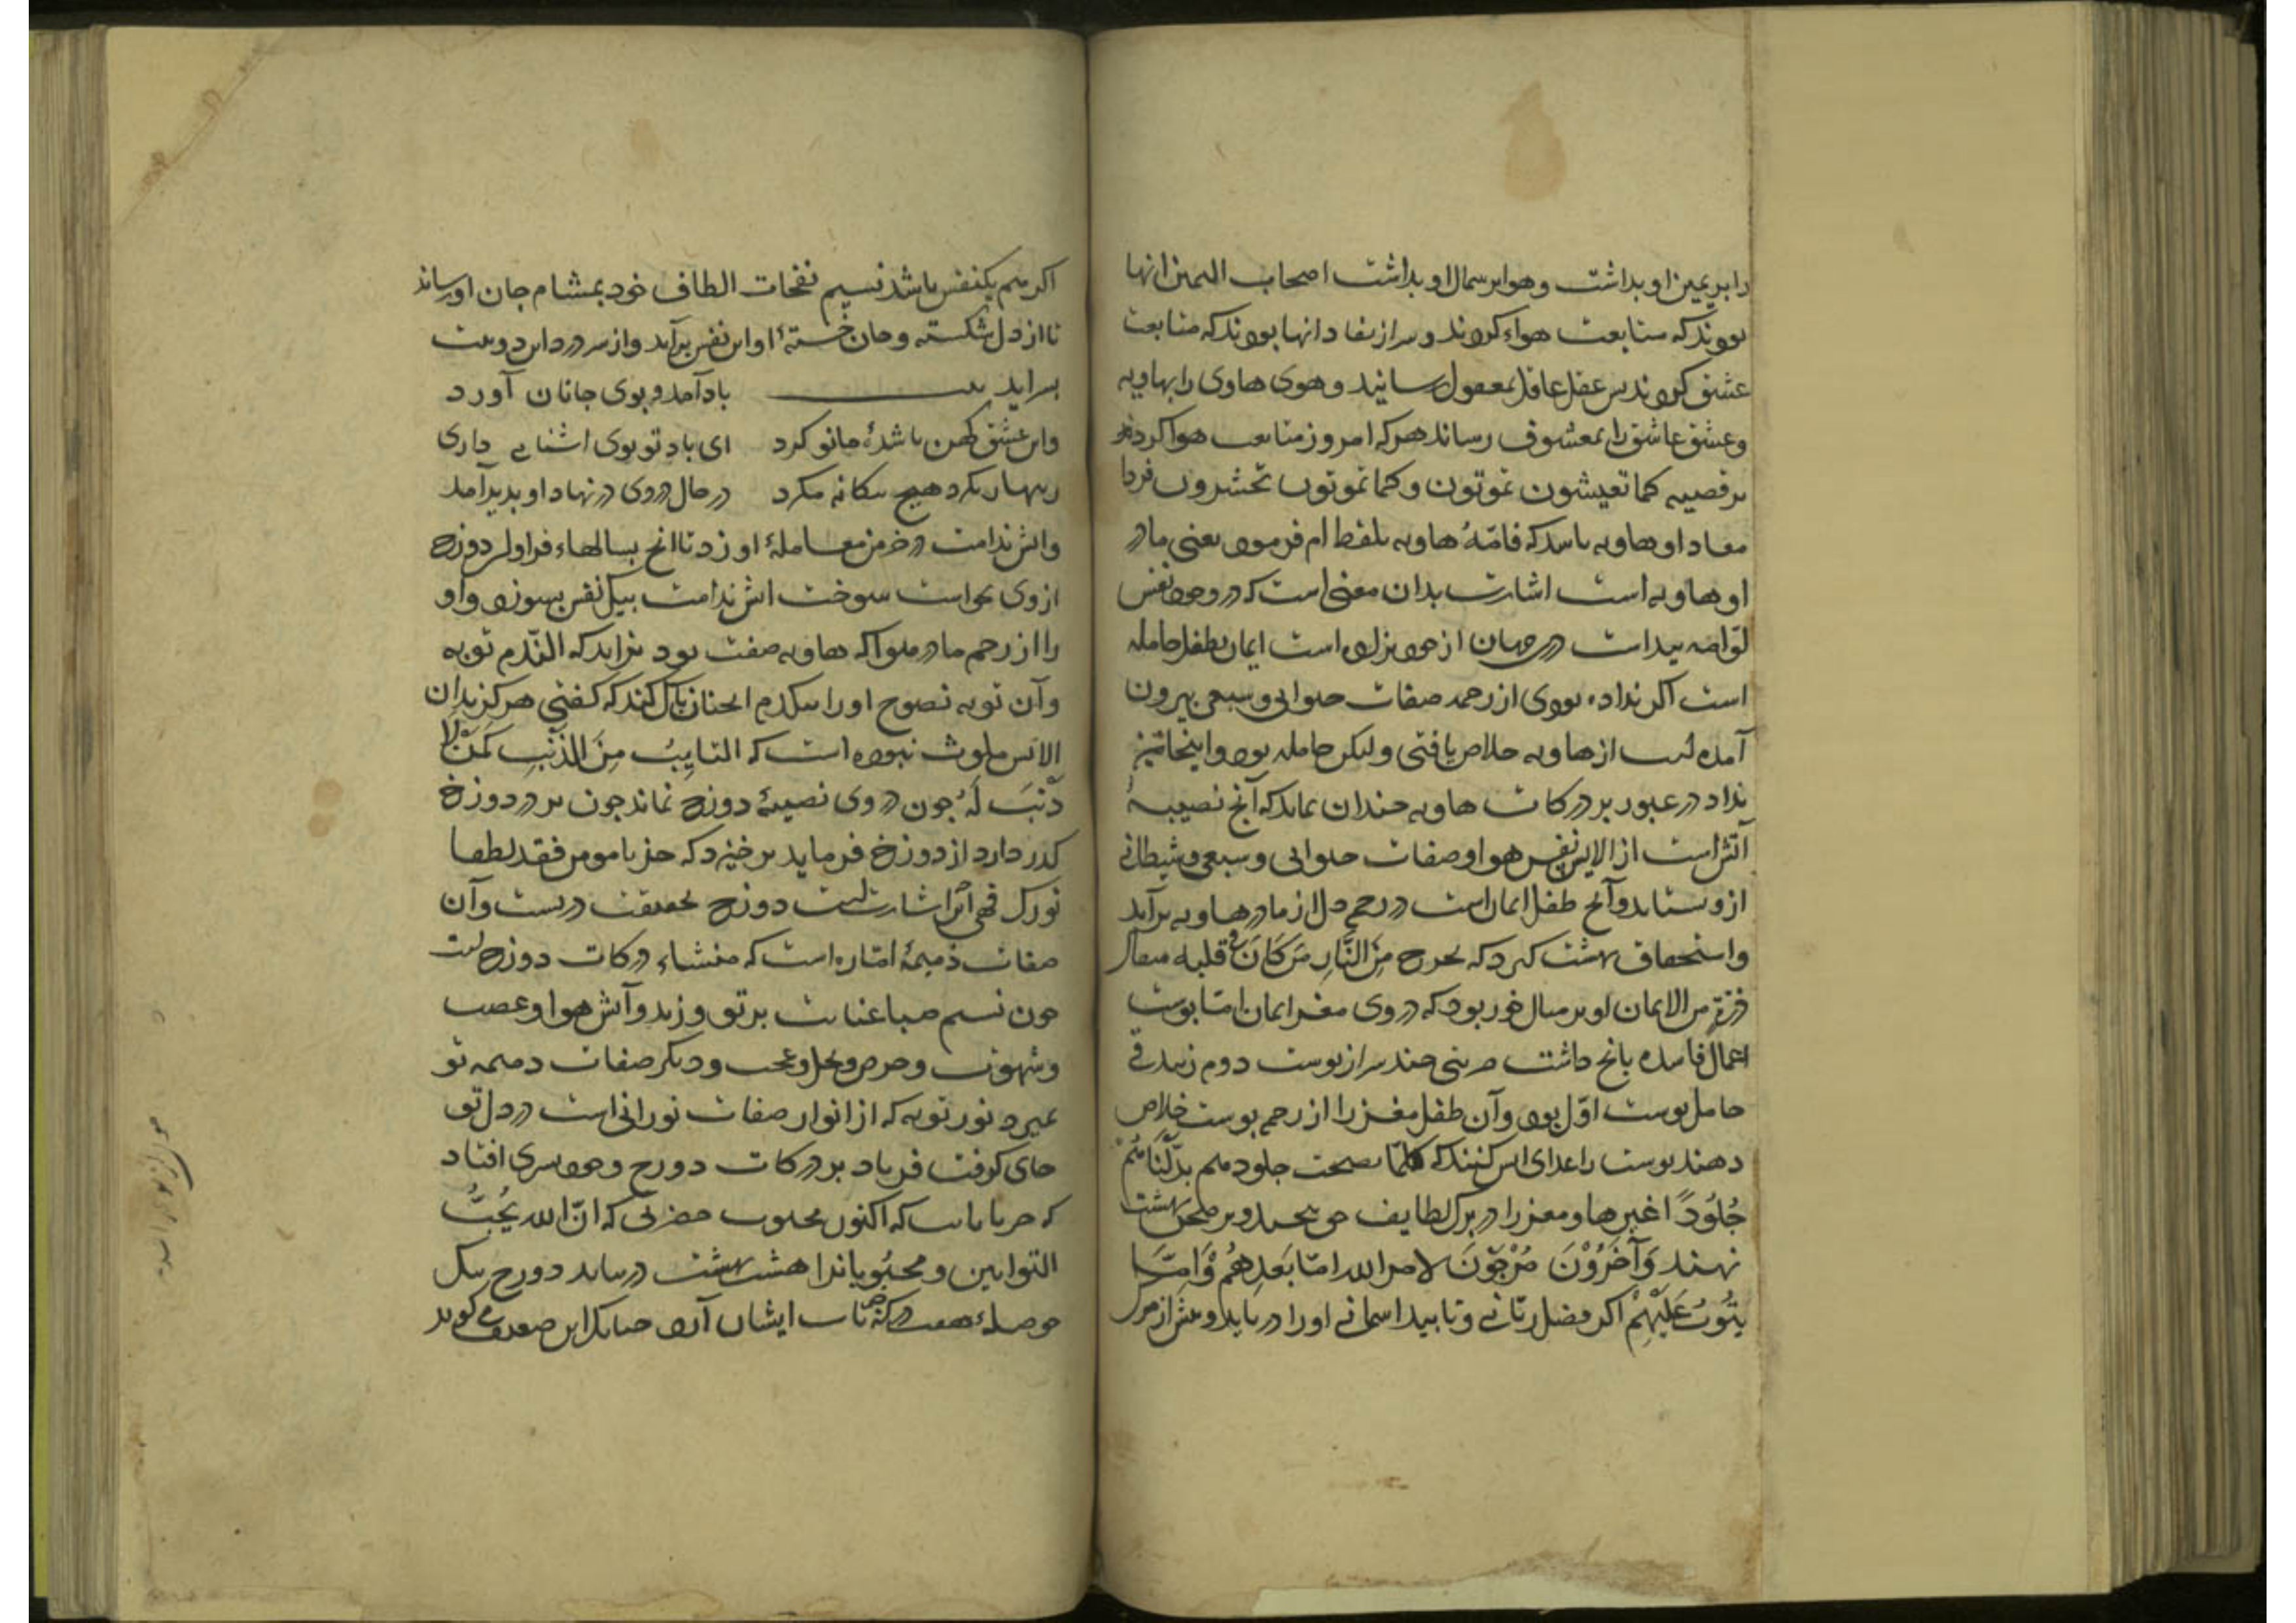 را بر یمین او بداشت و هوا بر شمال او بداشت اصحاب الیمین آنها
بودند که متابعت هواء کردند و سر از نفاد آنها بودند که متابعت
عشق کردند پس عقل عاقل بمعقول رسانید و هوی هاوی را بهاویه
و عشق عاشق را بمعشوق رساند هر که امروز متابعت هوا کرد
بر قضیه کما تعیشون تموتون و کما تموتون تحشرون فردا
معاد او هاویه باشد که فامّهُ هاویه بلفظ ام فرمود یعنی مادر
او هاویه است اشارت بدان معنی است که در وجود نفس
لوّامه پیداست در جهان از خود بزاده است ایمان بطفل حامله
است اگر نزاده بودی از رحم صفات حیوانی و سبعی بیرون
آمده از هاویه خلاص یافتی و لیکن حامله بود و اینجا نیز
نزاد در عبور بر درکات هاویه چندان بماند که آنچ نصیبهٔ
آتش است از الایش نفس هوا و صفات حیوانی و سبعی و شیطانی
ازو بستاند و آنچ طفل ایمان است در رحم دل از مادر هاویه برآید
و استحقاق بهشت گیرد که یخرج مِنَ النَّارِ مَن کَانَ فی قلبه مثقال
ذرّةٍ من الایمان او بر مثال جوز بود که در وی مغز ایمان امّا پوست
اعمال فاسده بانج داشت چند سر از پوست دوم زند فی
حامل پوست اوّل بود و آن طفل مغز را از رحم پوست خلاص
دهند پوست را غذای آتش کنند که کلمّا نضجت جلودهم بدّلناهُمْ
جُلُودًا غیرها و مغز را در برگ لطایف و بر صحن بهشت
نهند وَآخَرُوْنَ مُرْجَوْنَ لامر الله امّا یُعَذِّبهُمْ وَامَّا
یَتُوبُ عَلَیْهِمْ اگر فضل ربّانی و تایید آسمانی او را دریابد و پیش از مرگ
اگر هم یکنفس باشد نسیم نفحات الطاف خود بمشام جان او رساند
تا از دل شکسته و جان خستهٔ او این نفس برآید و از سر درد این دو بیت
بسراید بیت باد آمد و بوی جانان آورد
واین عشق کهن باشدهٔ ما نو کرد ای باد تو بوی اشنایی داری
زنهار بگرد هیچ بیگانه مگرد در حال دردی در نهاد او بدید آمد
و اتش ندامت در خرمن معاملهٔ او زد تا آنج بسالهاء فراوان دوزخ
از وی بخواست سوخت آتش ندامت بیک نفس بسوزد و او
را از رحم مادر هوا که هاویه صفت بود بزاید که النّدم توبه
وآن توبه نصوح او را بیکدم آنچنان پاک کند که گفتی هرگز بدان
الایش ملوث نبوده است که التایبُ مِنَ الذّنبِ کَمَن لا
ذَنْبَ لَهُ چون در وی نصیبهٔ دوزخ نماند چون بر در دوزخ
گذر دارد از دوزخ فریاد برخیزد که جز یا مومن فقد اطفا
نورک لهبی اشارت دوزخ بحقیقت در تست و آن
صفات ذمیمهٔ امّاره است که منشاء درکات دوزخ است
چون نسیم صبا عنایت بر تو وزید و آتش هوا و غضب
و شهوت و حرص و بخل و عجب و دیگر صفات ذمیمه تو
بمیرد نور توبه که از انوار صفات نورانی است در دل تو
جای گرفت فریاد بر درکات دوزخ وجود سری افتاد
که جز یا تایب که اکنون محبوب حضرتی که انّ الله یُحِبُّ
التوّابین و محبوبانرا هشت بهشت در باید دوزخ تنگ
حوصله هفت درکه تاب ایشان آرد چنانک این ضعیف می گوید